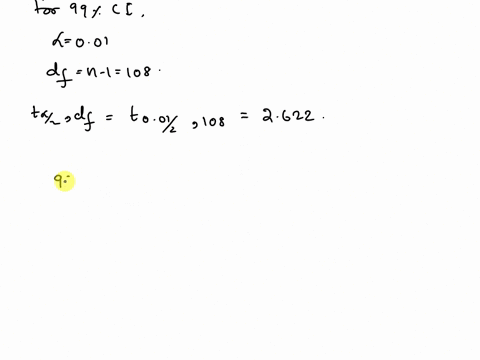 for 99% CI,
α=0.01
df = n-1 = 108.
tα/2, df = t0.01/2, 108 = 2.622.
9.